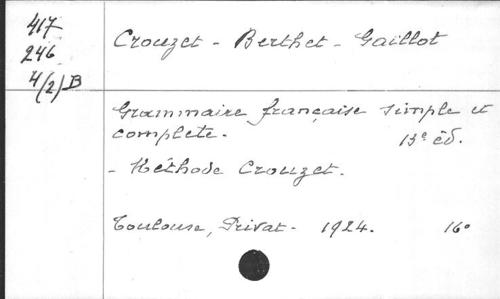 417
246
4/(2) B
Crouzet - Berthet - Gaillot
Grammaire française simple et
complète. 13e éd.
- Méthode Crouzet.
Toulouse, Privat - 1924. 16o